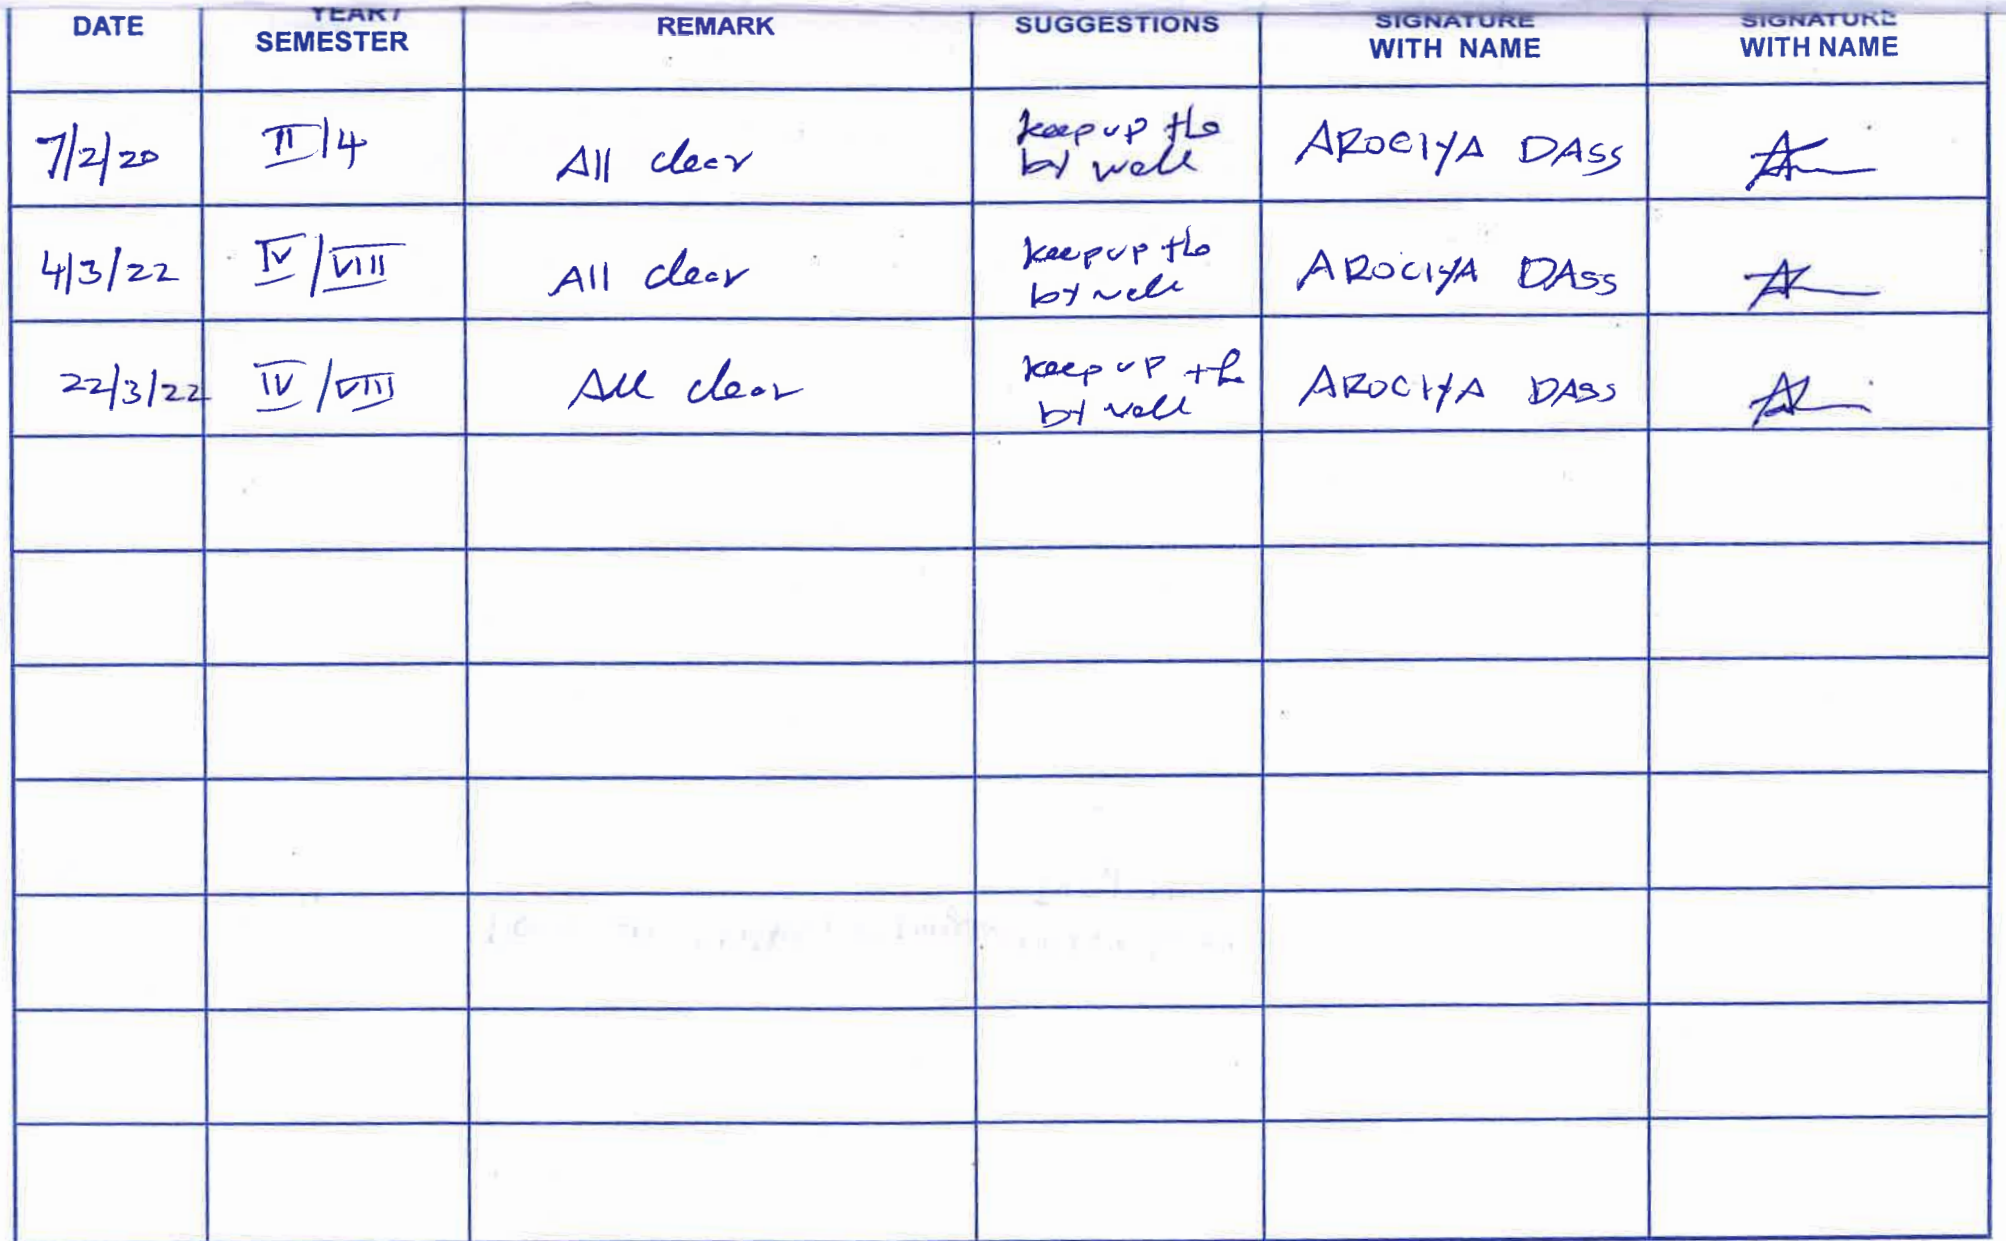 DATE YEAR/ SEMESTER REMARK SUGGESTIONS SIGNATURE WITH NAME SIGNATURE WITH NAME
7/2/20 II/4 All clear keep up the by well AROCIYA DASS
4/3/22 IV/VIII All clear keep up the by well AROCIYA DASS
22/3/22 IV/VIII All clear keep up the by well AROCIYA DASS